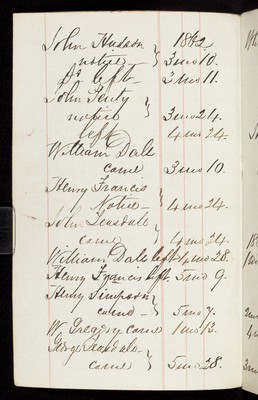 John Hudson 1862
notice } 3 mo 10.
Do left 3 mo 11.
John Tenty
notice } 3 mo 24.
left 4 mo 24.
William Dale
came 3 mo 10.
Henry Francis
Notice } 4 mo 24.
John Teasdale
came } 4 mo 24.
William Dale left 4 mo 28.
Henry Francis left 5 mo 9.
Henry Simpson
came } 5 mo 7.
W. Gregory came 1 mo 13.
George Teasdale
came } 5 mo 28.